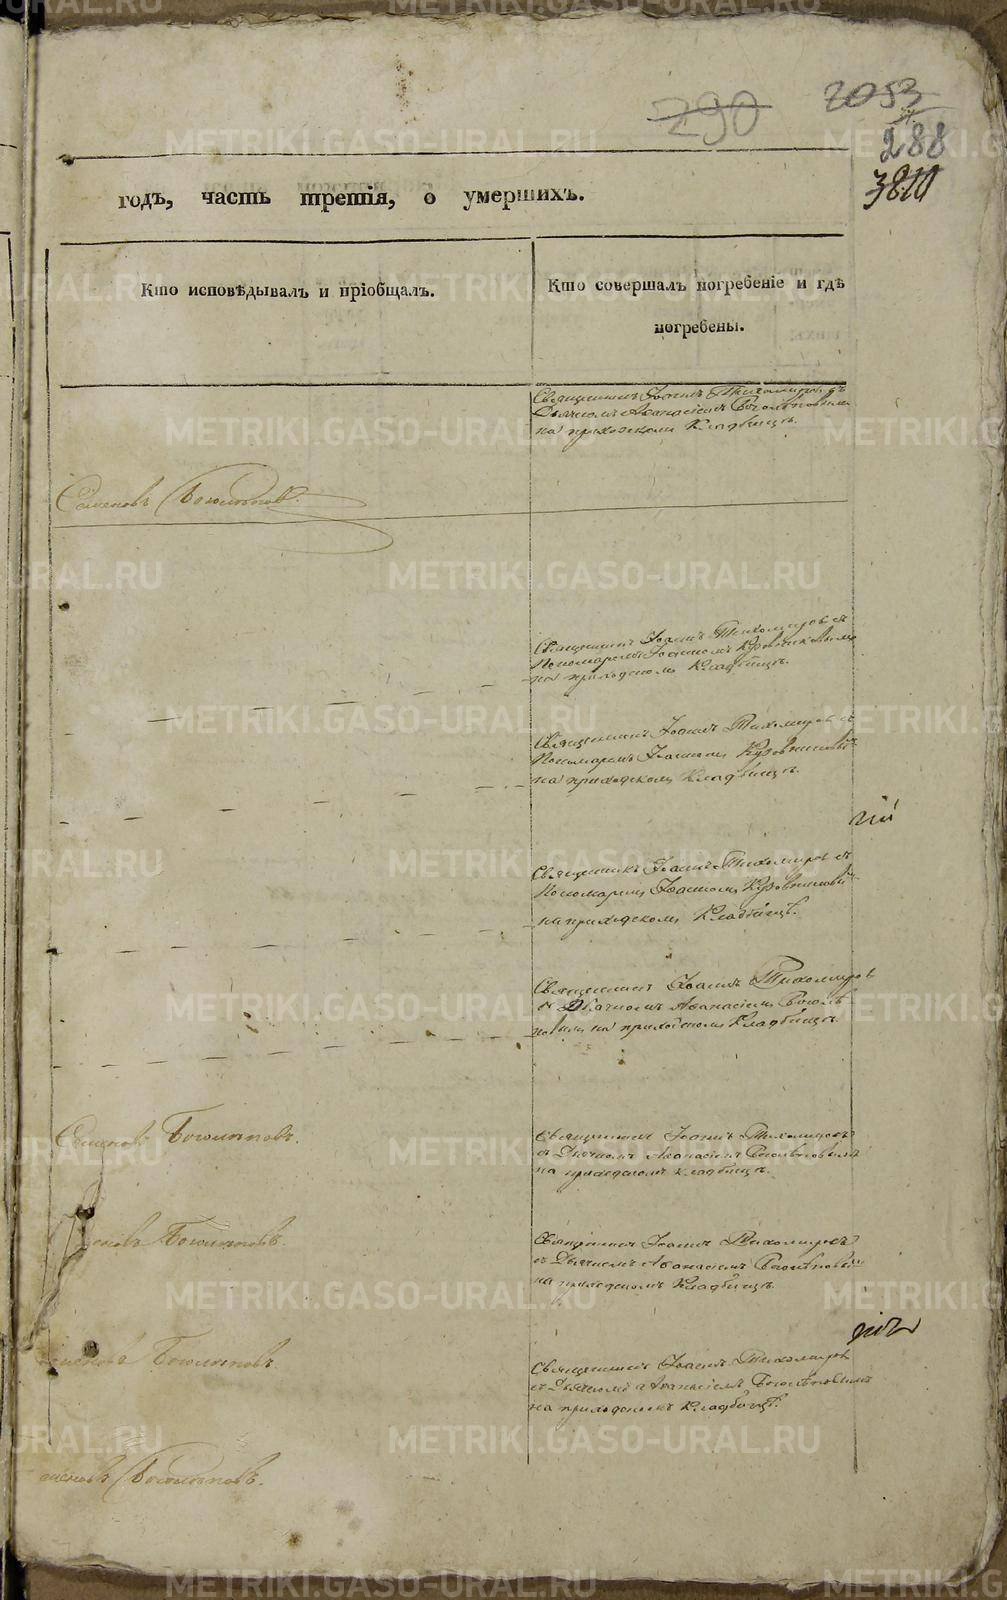 290
2053
288
3810
годъ, часть третія, о умершихъ.
Кто исповѣдывалъ и пріобщалъ.
Кто совершалъ погребеніе и гдѣ
погребены.
Священникъ Іоаннъ Тихомировъ съ
Дьячкомъ Аѳанасіемъ Боголѣповымъ
на приходскомъ Кладбищѣ.
Семеновъ Боголѣповъ.
Священникъ Іоаннъ Тихомировъ съ
Пономаремъ Іоанномъ
на приходскомъ Кладбищѣ.
Священникъ Іоаннъ Тихомировъ съ
Пономаремъ Іоанномъ
на приходскомъ Кладбищѣ.
Священникъ Іоаннъ Тихомировъ съ
Пономаремъ Іоанномъ
на приходскомъ Кладбищѣ.
Священникъ Іоаннъ Тихомировъ
съ Дьячкомъ Аѳанасіемъ Боголѣ
повымъ на приходскомъ Кладбищѣ.
Семеновъ Боголѣповъ.
Священникъ Іоаннъ Тихомировъ
съ Дьячкомъ Аѳанасіемъ Боголѣповымъ
на приходскомъ Кладбищѣ.
Боголѣповъ.
Священникъ Іоаннъ Тихомировъ
съ Дьячкомъ Аѳанасіемъ Боголѣповымъ
на приходскомъ Кладбищѣ.
Боголѣповъ.
Священникъ Іоаннъ Тихомировъ
съ Дьячкомъ Аѳанасіемъ Боголѣповымъ
на приходскомъ Кладбищѣ.
Боголѣповъ.
METRIKI.GASO-URAL.RU